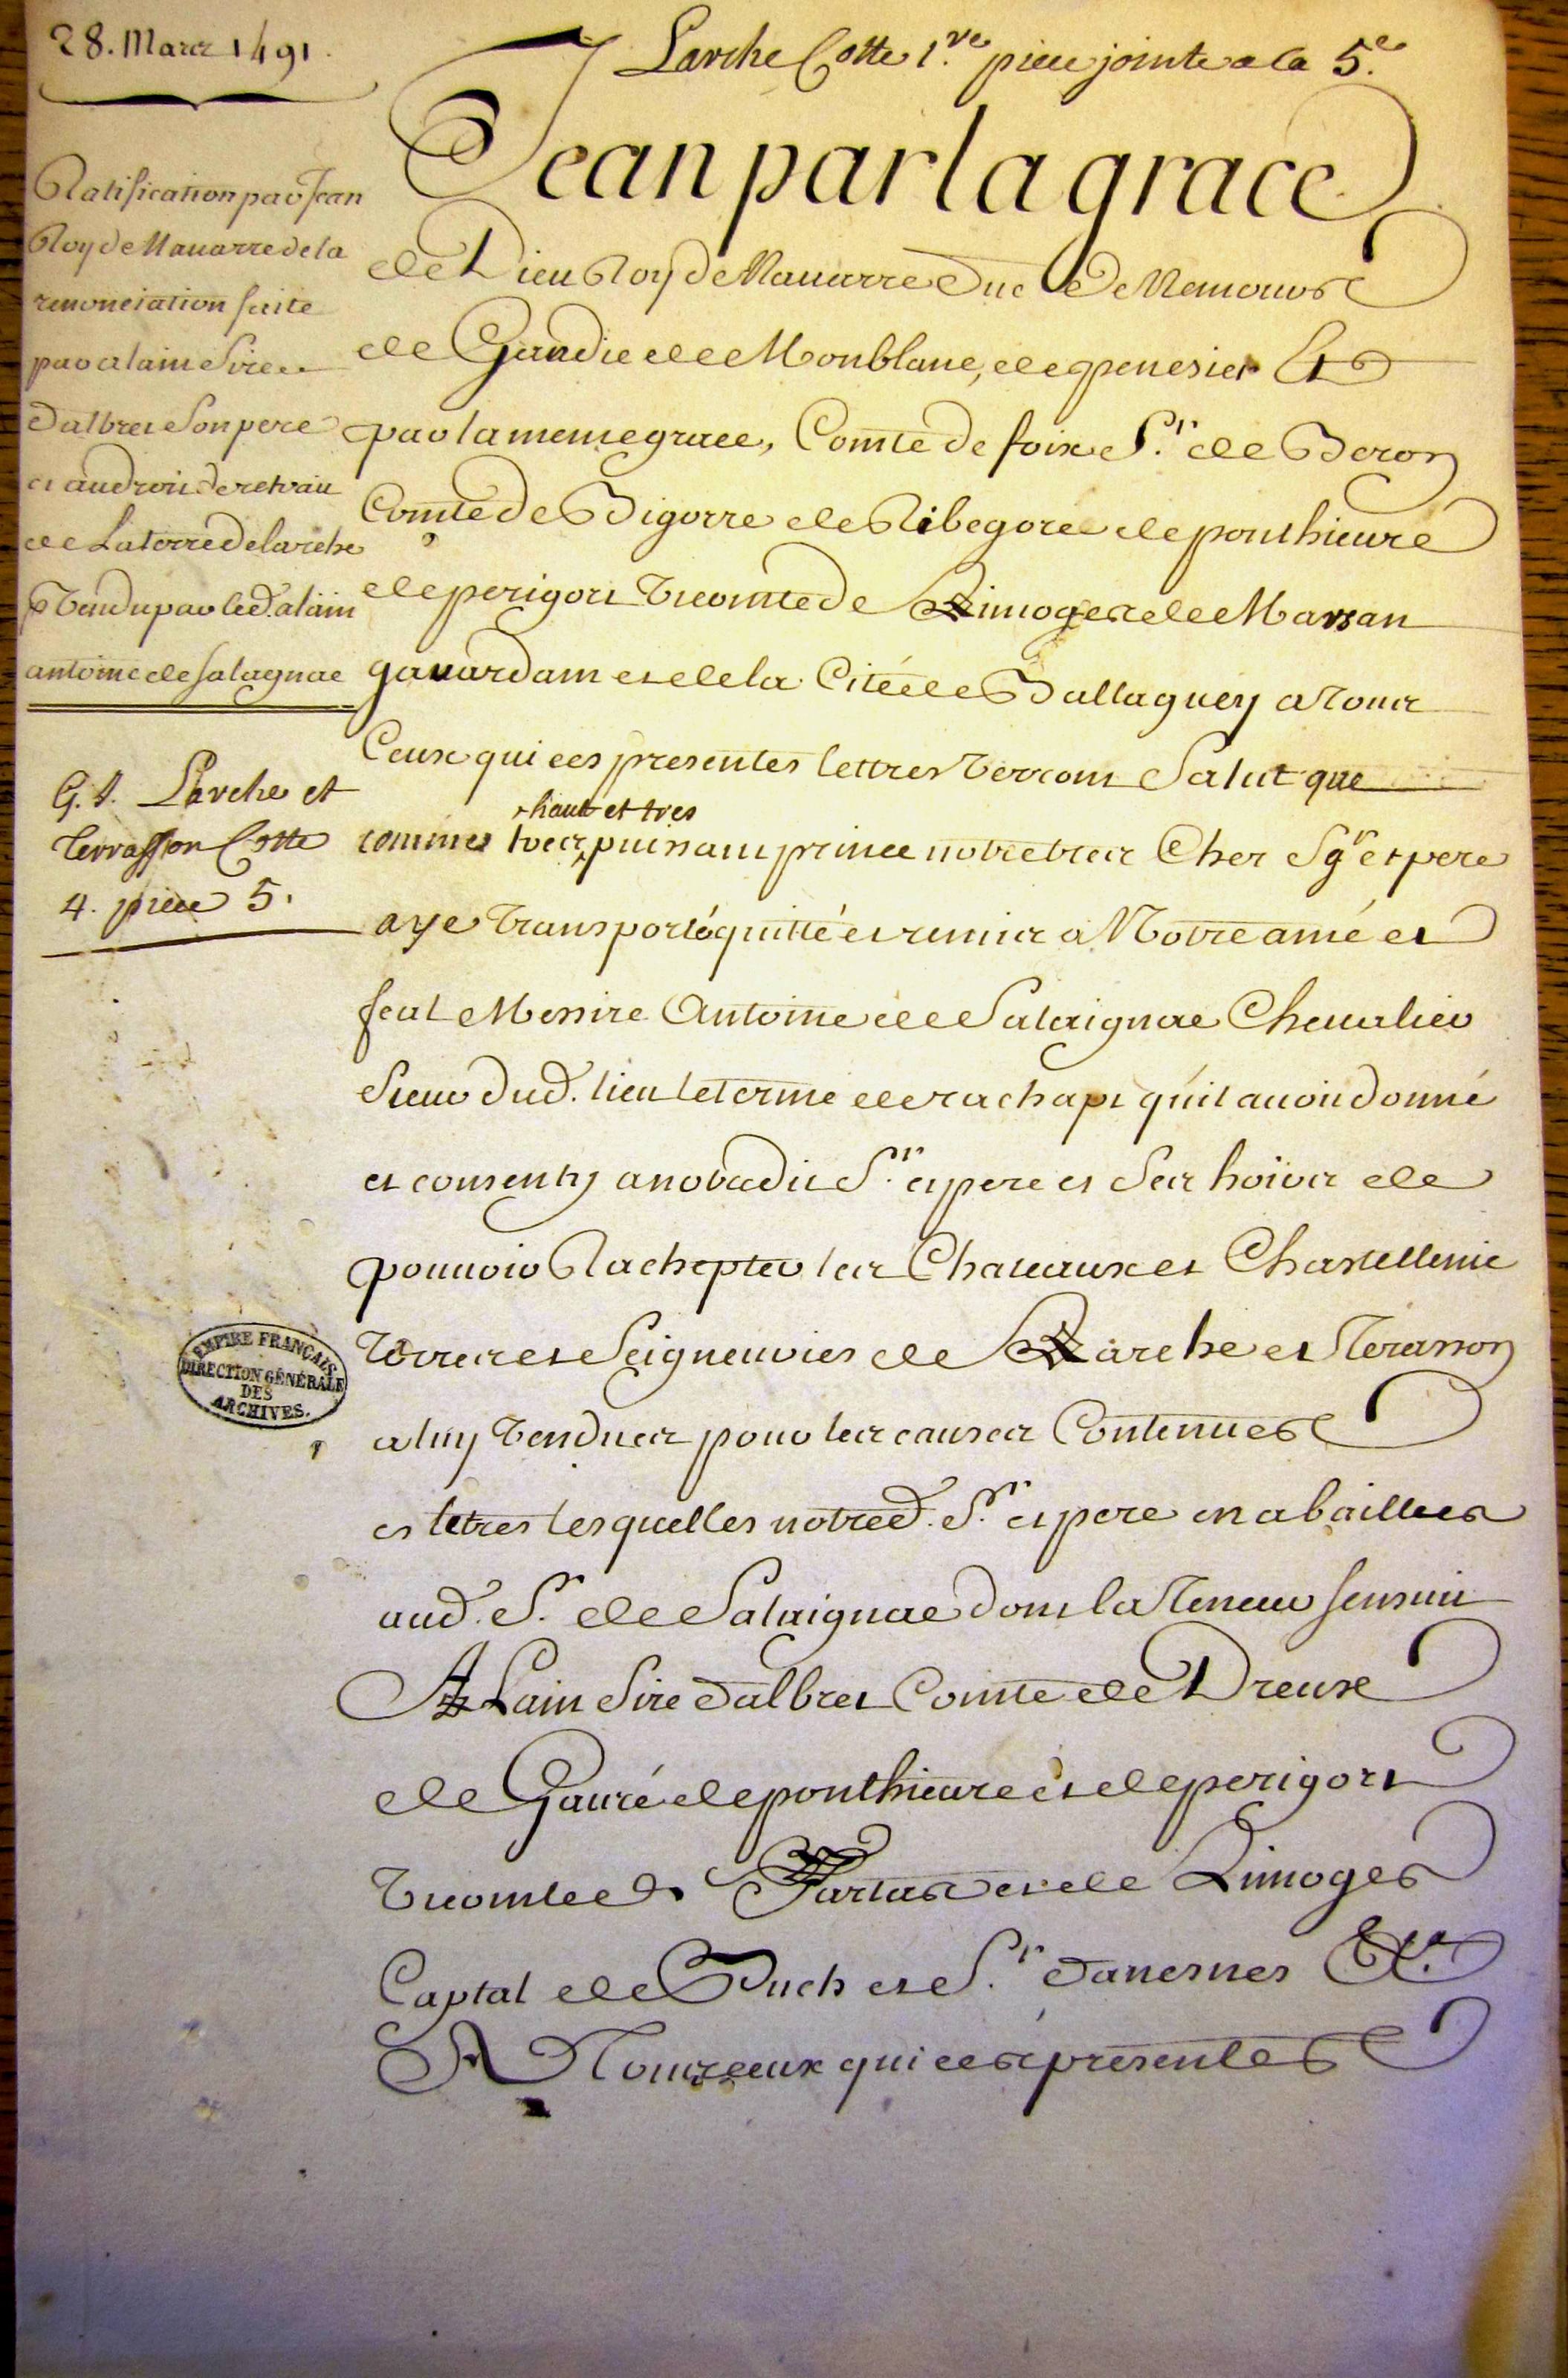 28. Mars 1491.
Larche Cotte 1.re piece jointe a la 5.e
Ratification par Jean
Roy de Nauarre de la
renonciation faite
par alain Sire
dalbret Son pere
et au droit de retrait
de La terre de larche
Vendu par led. alain
antoine de Salagnac
G. 1. Larche et
Terrasson Cotte
4. piece 5.
Jean par la grace
de Dieu Roy de Nauarre Duc de Nemours
de Gandie de Monblanc, de penesiet Et
par la meme grace, Comte de foix S.r de Beron
Comte de Bigorre de Ribegorce de ponthieure
de perigort Vicomte de Limoges de Marsan
gauardam et de la Citée de Ballaguey a Tous
Ceux qui ces presentes lettres Verront Salut que
comme tres haut et tres puissant prince notre tres Cher Sgr et pere
aye Transporté quitté et remis a Notre amé et
feal Messire Antoine de Salaignac Cheualier
Sieur dud. lieu le terme de rachapt quil auoit donné
et consenty a notredit S.r et pere et Ses hoirs de
pouuoir Rachepter les Chateaux et Chastellenie
Terres et Seigneuries de Larche et Terasson
a luy Vendues pour les causes Contenues
es letres lesquelles notred. S.r et pere en a baillees
aud. S.r de Salaignac dont la Teneur sensuit
ALain Sire dalbret Comte de Dreux
de Gauré de ponthieure et de perigort
Vicomte de Tartas et de Limoges
Captal de Buch et S.r dauesnes &c.a
A Tous ceux qui ces presentes
EMPIRE FRANÇAIS
DIRECTION GÉNÉRALE
DES
ARCHIVES.